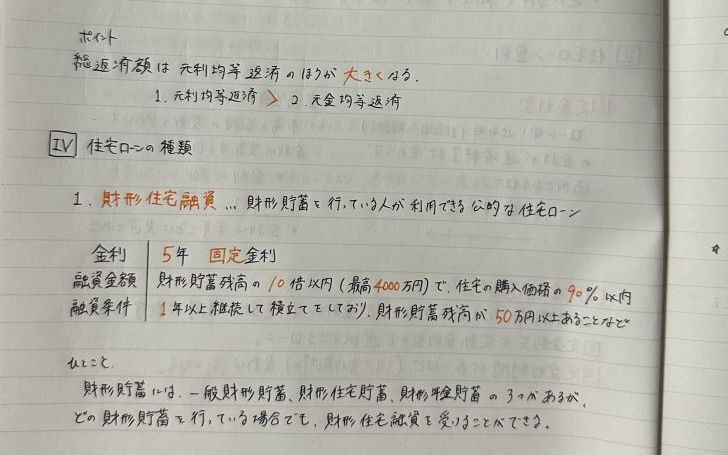 ポイント
総返済額は元利均等返済のほうが大きくなる.
1. 元利均等返済 > 2. 元金均等返済
IV 住宅ローンの種類
1. 財形住宅融資… 財形貯蓄を行っている人が利用できる公的な住宅ローン
金利 5年 固定金利
融資金額 財形貯蓄残高の10倍以内(最高4000万円)で、住宅の購入価格の90%以内
融資条件 1年以上継続して積立てをしており、財形貯蓄残高が50万円以上あることなど
ひとこと.
財形貯蓄には、一般財形貯蓄、財形住宅貯蓄、財形年金貯蓄の3つがあるが、
どの財形貯蓄を行っている場合でも、財形住宅融資を受けることができる。